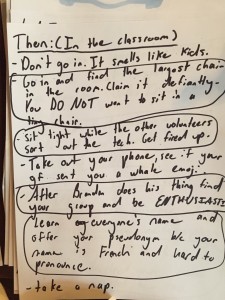 Then: (In the classroom)
- Don't go in. It smells like kids.
Go in and find the largest chair
in the room. Claim it defiantly.
You DO NOT want to sit in a
tiny chair.
Sit tight while the other volunteers
sort out the tech. Get fired up.
- Take out your phone, see if your
gf sent you a whale emoj...
- After Brandon does his thing find
your group and be ENTHUSIASTIC
Learn everyone's name and
offer your pseudonym b/c your
name is French and hard to
pronounce.
- take a nap.